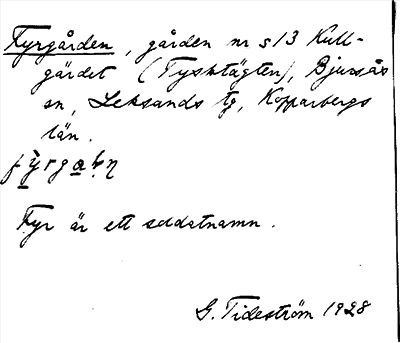 Fyrgården, gården nr s13 Kull-
gärdet (Tysktägten), Bjursås
sn, Leksands tg, Kopparbergs
län.
Fyr är ett soldatnamn.
G. Tideström 1928